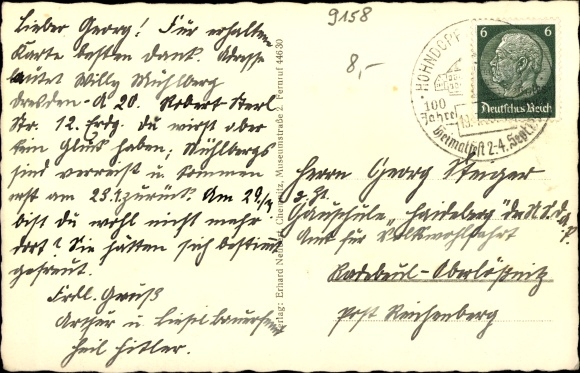 Lieber Georg! Für erhaltene
Karte besten Dank. Adresse
lautet Willy Mühlberg
Dresden-A 20. Robert Sterl
Str. 12. Erdg. Du wirst aber
kein Glück haben, Mühlbergs
sind verreist u. kommen
erst am 23. zurück. Am
bist du wohl nicht mehr
dort? Sie hätten sich bestimmt
gefreut.
Frdl. Gruß
Arthur u. Liesel
Heil Hitler.
9158
8,-
Verlag: Erhard Chemnitz, Museumstraße 2, Fernruf 44630
HOHNDORF
100
Jahre
Heimatfest 2.-4. Sept.
6 6
Deutsches Reich
Herrn Georg Steiger
z. Zt.
Gauschule „Haideberg" der N.S.D.A.P.
Amt für Volkswohlfahrt
Radebeul-Oberlößnitz
Post Reichenberg